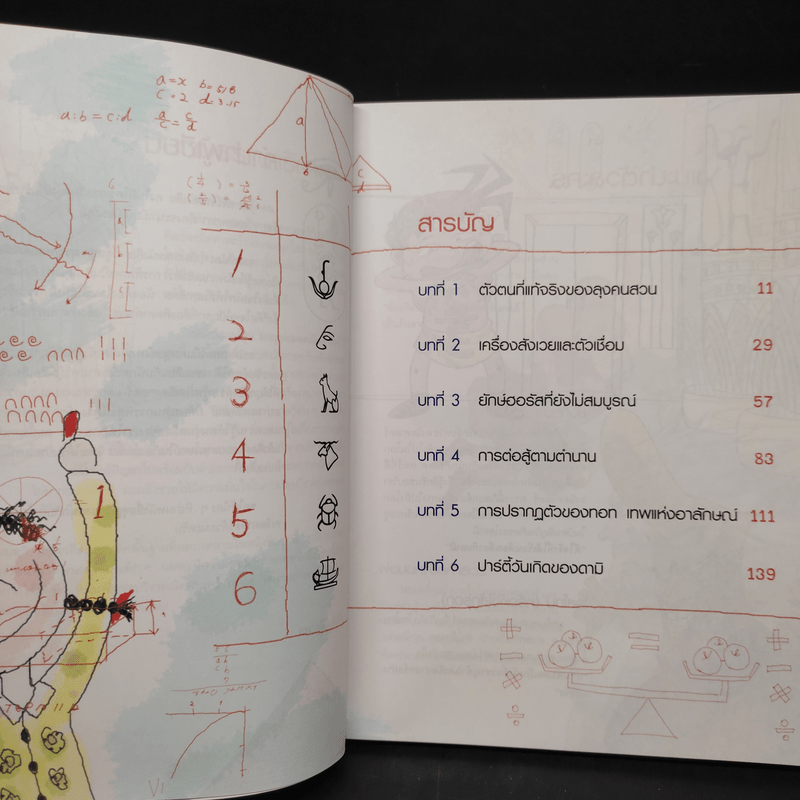 a=x
c+2 d=3.15
a:b=c:d a/c=c/d
a
b
c
d
1
2
3
4
5
6
1
สารบัญ
บทที่ 1 ตัวตนที่แท้จริงของลุงคนสวน 11
บทที่ 2 เครื่องสังเวยและตัวเชื่อม 29
บทที่ 3 ยักษ์ฮอรัสที่ยังไม่สมบูรณ์ 57
บทที่ 4 การต่อสู้ตามตำนาน 83
บทที่ 5 การปรากฏตัวของทอท เทพแห่งอาลักษณ์ 111
บทที่ 6 ปาร์ตี้วันเกิดของดามิ 139
+ = +
− −
× ×
÷ ÷